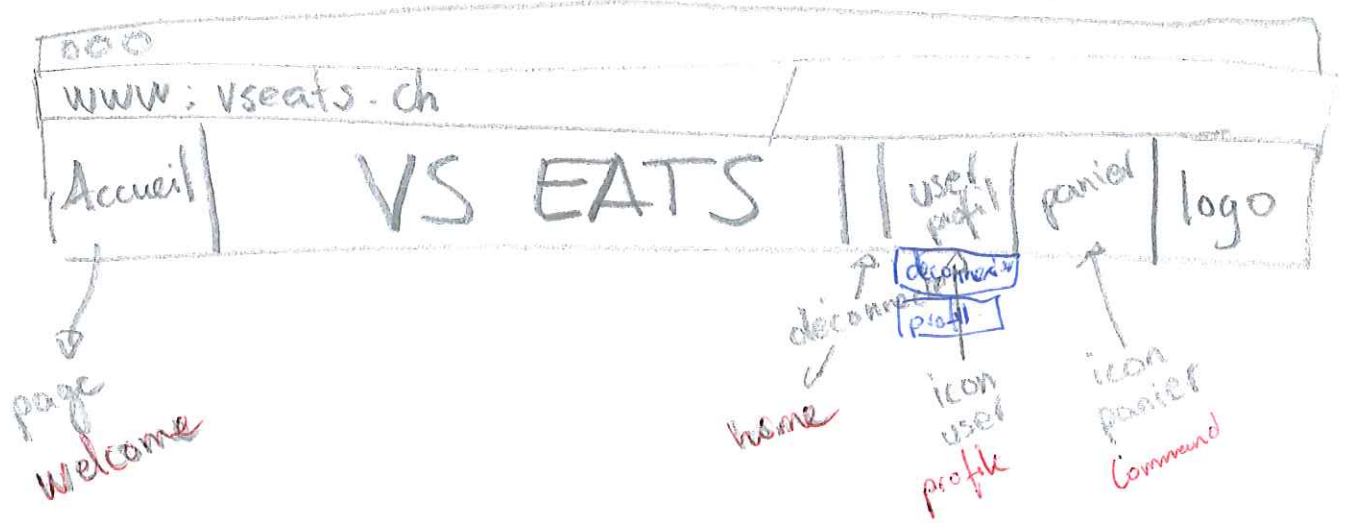 www: vseats.ch
Accueil
VS EATS
user
profil
panier
logo
deconnexion
profil
page
welcome
home
icon
user
profile
icon
panier
Command